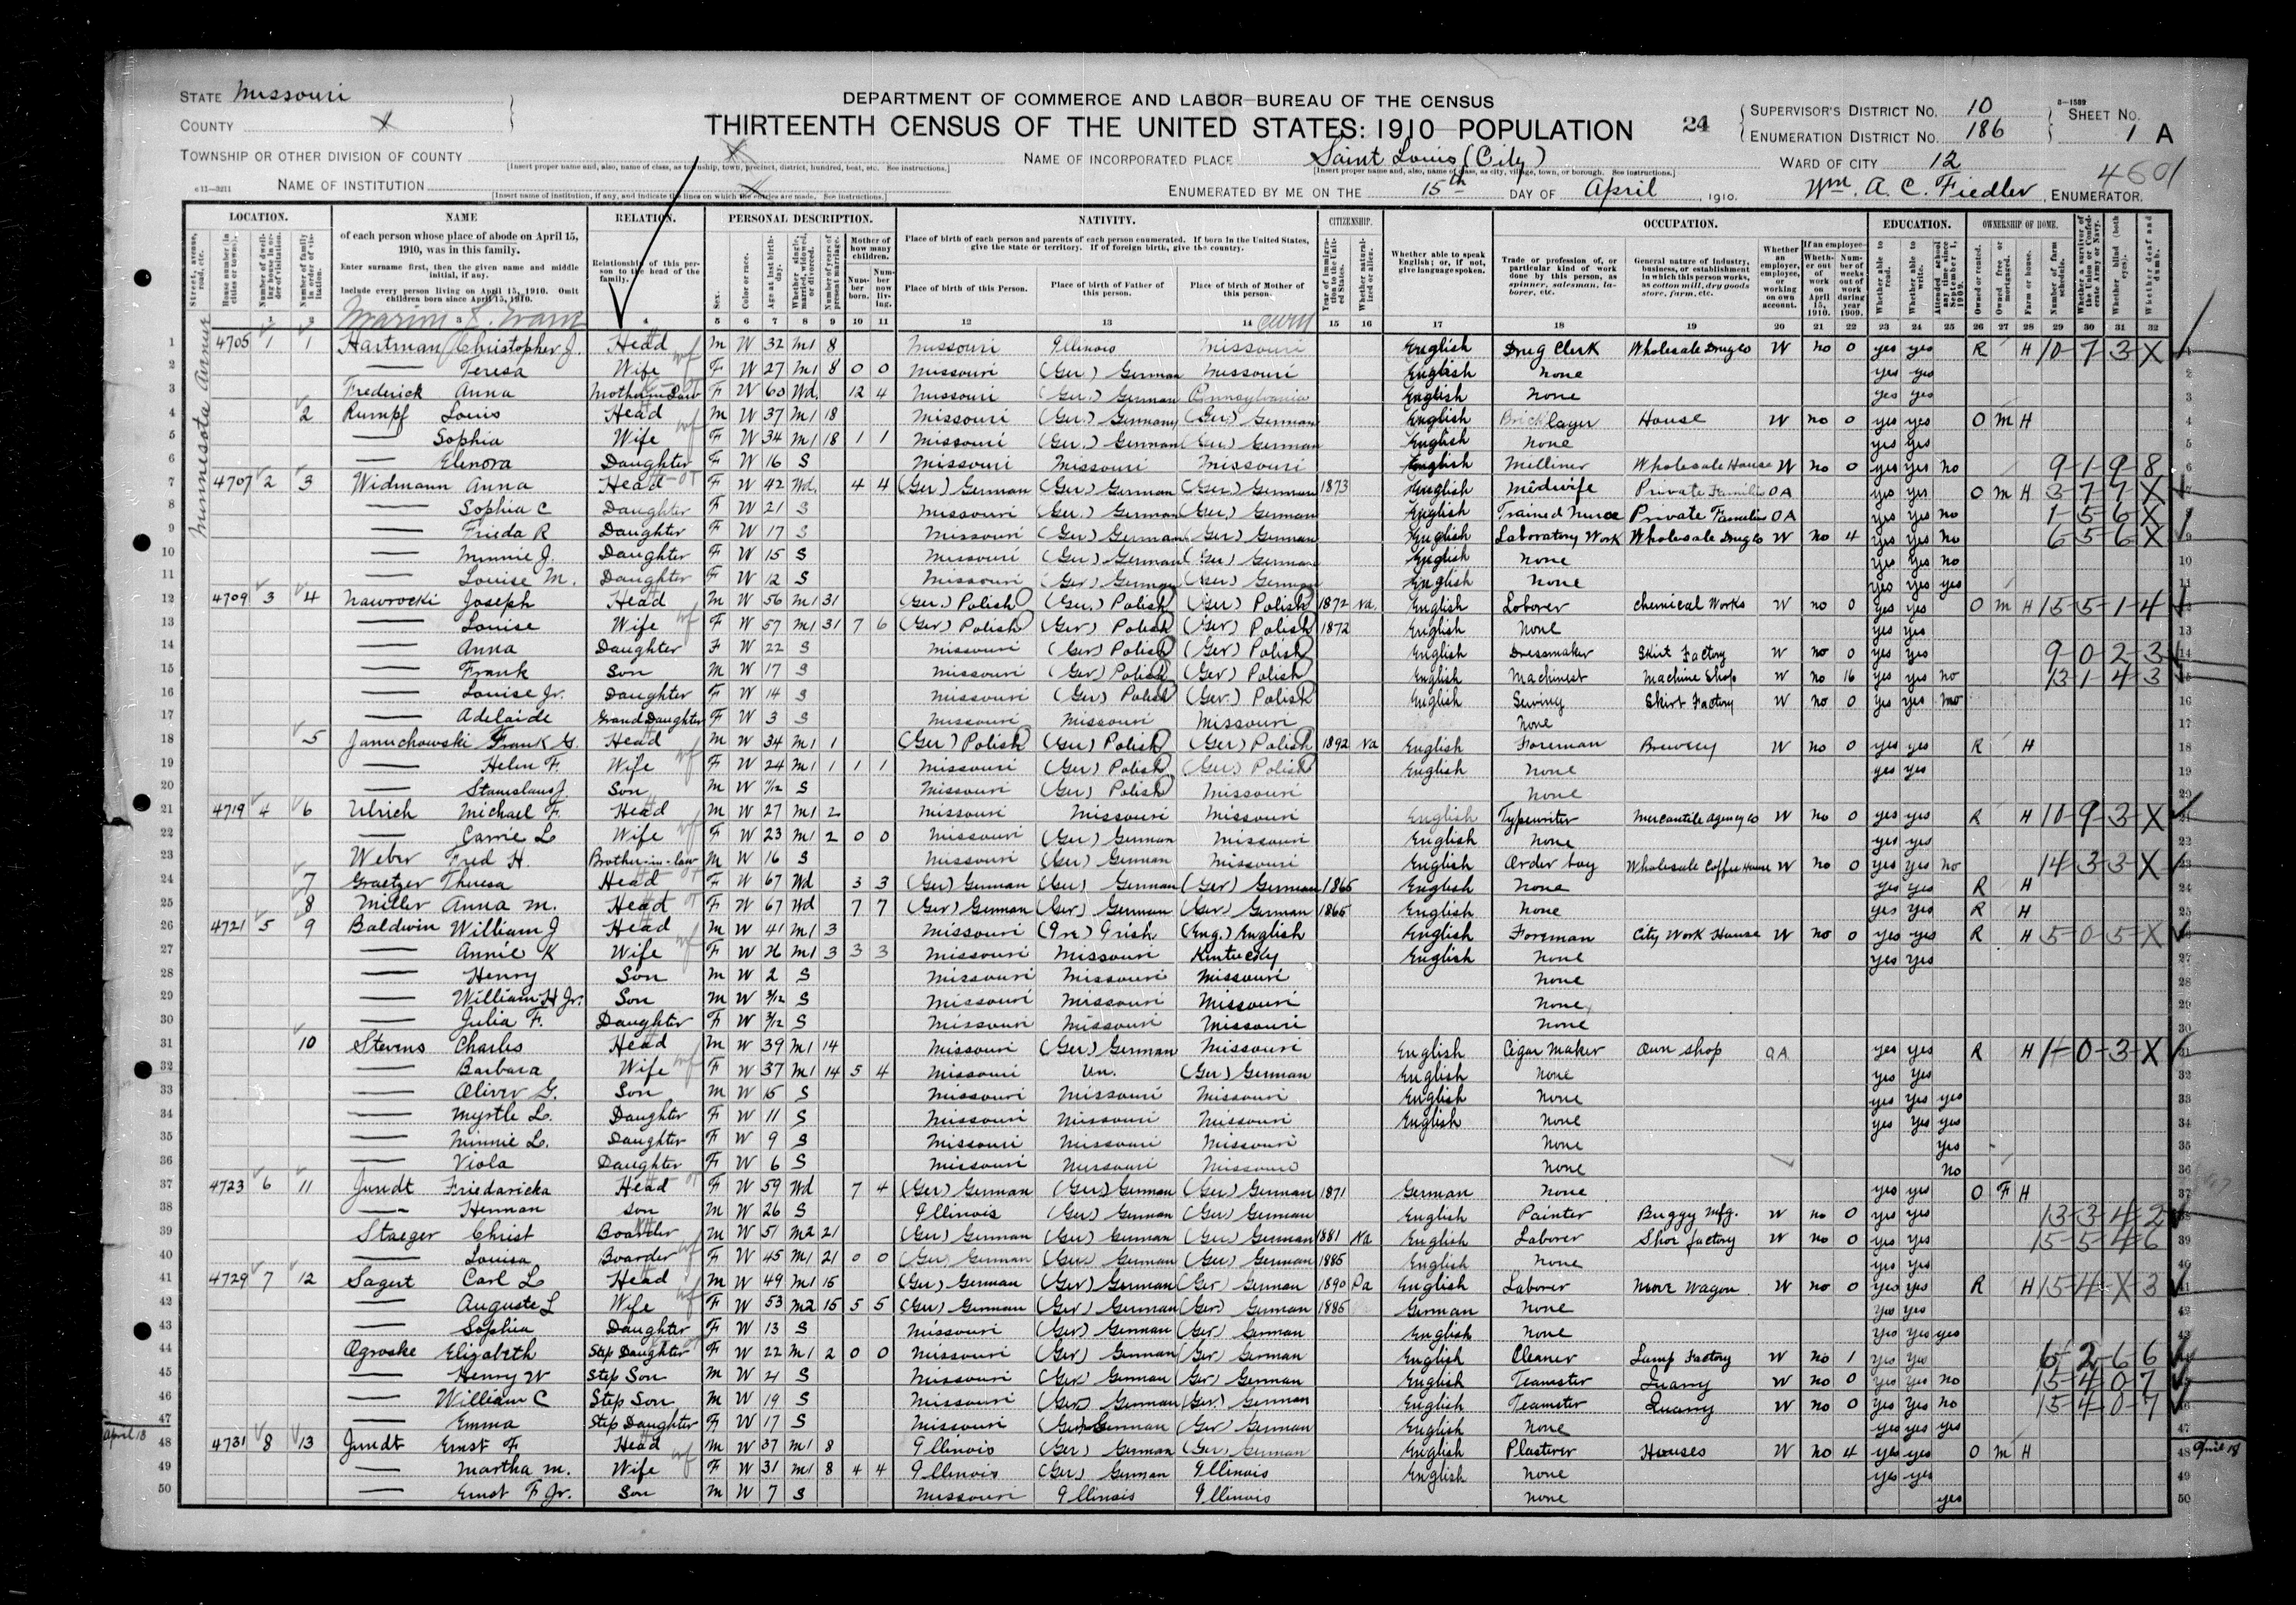 STATE Missouri
COUNTY X
TOWNSHIP OR OTHER DIVISION OF COUNTY X
[Insert proper name and, also, name of class, as township, town, precinct, district, hundred, beat, etc. See instructions.]
NAME OF INSTITUTION X
[Insert name of institution, if any, and indicate the lines on which the entries are made. See instructions.]
c 11—3211
DEPARTMENT OF COMMERCE AND LABOR—BUREAU OF THE CENSUS
THIRTEENTH CENSUS OF THE UNITED STATES: 1910—POPULATION
24
NAME OF INCORPORATED PLACE Saint Louis (City)
[Insert proper name and, also, name of class, as city, village, town, or borough. See instructions.]
ENUMERATED BY ME ON THE 15th DAY OF April, 1910.
SUPERVISOR'S DISTRICT NO. 10
ENUMERATION DISTRICT NO. 186
8—1589
SHEET NO. 1 A
WARD OF CITY 12
4601
Wm. A. C. Fiedler, ENUMERATOR.
LOCATION. NAME RELATION. PERSONAL DESCRIPTION. NATIVITY. CITIZENSHIP. OCCUPATION. EDUCATION. OWNERSHIP OF HOME.
of each person whose place of abode on April 15, 1910, was in this family.
Enter surname first, then the given name and middle initial, if any.
Include every person living on April 15, 1910. Omit children born since April 15, 1910.
Relationship of this person to the head of the family.
Place of birth of each person and parents of each person enumerated. If born in the United States, give the state or territory. If of foreign birth, give the country.
Place of birth of this Person. Place of birth of Father of this person. Place of birth of Mother of this person.
Whether able to speak English; or, if not, give language spoken.
Trade or profession of, or particular kind of work done by this person, as spinner, salesman, laborer, etc.
General nature of industry, business, or establishment in which this person works, as cotton mill, dry goods store, farm, etc.
1 2 3 4 5 6 7 8 9 10 11 12 13 14 15 16 17 18 19 20 21 22 23 24 25 26 27 28 29 30 31 32
Minnesota Avenue
1 4705 1 1 Hartman Christopher J. Head M W 32 M1 8 Missouri Illinois Missouri English Drug Clerk Wholesale Drug Co W no 0 yes yes R H 10-7-3-X
2 Teresa Wife F W 27 M1 8 0 0 Missouri (Ger) German Missouri English None yes yes
3 Frederick Anna Mother in Law F W 60 Wd. 12 4 Missouri (Ger.) German Pennsylvania English None yes yes
4 2 Rumpf Louis Head M W 37 M1 18 Missouri (Ger.) Germany (Ger) German English Bricklayer House W no 0 yes yes O M H
5 Sophia Wife F W 34 M1 18 1 1 Missouri (Ger.) German (Ger.) German English None yes yes
6 Elenora Daughter F W 16 S Missouri Missouri Missouri English Milliner Wholesale House W no 0 yes yes no 9-1-9-8
7 4707 2 3 Widmann Anna Head F W 42 Wd. 4 4 (Ger) German (Ger) German (Ger) German 1873 English Midwife Private Families OA yes yes O M H 3-7-7-X
8 Sophia C Daughter F W 21 S Missouri (Ger.) German (Ger.) German English Trained Nurse Private Families OA yes yes no 1-5-6-X
9 Frieda R Daughter F W 17 S Missouri (Ger) German (Ger) German English Laboratory Work Wholesale Drug Co W no 4 yes yes no 6-5-6-X
10 Minnie J. Daughter F W 15 S Missouri (Ger) German (Ger) German English None yes yes no
11 Louise M. Daughter F W 12 S Missouri (Ger) German (Ger) German English None yes yes yes
12 4709 3 4 Nawrocki Joseph Head M W 56 M1 31 (Ger.) Polish (Ger.) Polish (Ger) Polish 1872 Na. English Laborer Chemical Works W no 0 yes yes O M H 15-5-1-4
13 Louise Wife F W 57 M1 31 7 6 (Ger) Polish (Ger) Polish (Ger) Polish 1872 English None yes yes
14 Anna Daughter F W 22 S Missouri (Ger) Polish (Ger) Polish English Dressmaker Skirt Factory W no 0 yes yes 9-0-2-3
15 Frank Son M W 17 S Missouri (Ger) Polish (Ger) Polish English Machinist Machine Shop W no 16 yes yes no 13-1-4-3
16 Louise Jr. Daughter F W 14 S Missouri (Ger) Polish (Ger.) Polish English Sewing Skirt Factory W no 0 yes yes no
17 Adelaide Grand Daughter F W 3 S Missouri Missouri Missouri None
18 5 Januchowski Frank G. Head M W 34 M1 1 (Ger) Polish (Ger) Polish (Ger) Polish 1892 Na English Foreman Brewery W no 0 yes yes R H
19 Helen F. Wife F W 24 M1 1 1 1 Missouri (Ger) Polish (Ger) Polish English None yes yes
20 Stanislaus J. Son M W S Missouri (Ger) Polish Missouri None
21 4719 4 6 Ulrich Michael F. Head M W 27 M1 2 Missouri Missouri Missouri English Typewriter Mercantile Agency Co W no 0 yes yes R H 10-9-3-X
22 Carrie L Wife F W 23 M1 2 0 0 Missouri (Ger) German Missouri English None yes yes
23 Weber Fred H. Brother-in-law M W 16 S Missouri (Ger) German Missouri English Order boy Wholesale Coffee House W no 0 yes yes no 14-3-3-X
24 7 Graetzer Theresa Head F W 67 Wd 3 3 (Ger) German (Ger) German (Ger) German 1865 English None yes yes R H
25 8 Miller Anna M. Head F W 67 Wd 7 7 (Ger) German (Ger) German (Ger) German 1865 English None yes yes R H
26 4721 5 9 Baldwin William J Head M W 41 M1 3 Missouri (Ire) Irish (Eng.) English English Foreman City Work House W no 0 yes yes R H 5-0-5-X
27 Annie K Wife F W 26 M1 3 3 3 Missouri Missouri Kentucky English None yes yes
28 Henry Son M W 2 S Missouri Missouri Missouri None
29 William H Jr. Son M W 3/12 S Missouri Missouri Missouri None
30 Julia F. Daughter F W 3/12 S Missouri Missouri Missouri None
31 10 Stevens Charles Head M W 39 M1 14 Missouri (Ger) German Missouri English Cigar Maker Own Shop OA yes yes R H 1-0-3-X
32 Barbara Wife F W 37 M1 14 5 4 Missouri Un. (Ger) German English None yes yes
33 Oliver G. Son M W S Missouri Missouri Missouri English None yes yes yes
34 Myrtle L. Daughter F W 11 S Missouri Missouri Missouri English None yes yes yes
35 Minnie L. Daughter F W 9 S Missouri Missouri Missouri None yes
36 Viola Daughter F W 6 S Missouri Missouri Missouri None no
37 4723 6 11 Jundt Friedaricka Head F W 59 Wd 7 4 (Ger) German (Ger) German (Ger) German 1871 German None yes yes O F H
38 Herman Son M W 26 S Illinois (Ger) German (Ger) German English Painter Buggy Mfg. W no 0 yes yes 13-3-4-2
39 Staeger Christ Boarder M W 51 M2 21 (Ger) German (Ger) German (Ger) German 1881 Na English Laborer Shoe factory W no 0 yes yes 15-5-4-6
40 Louisa Boarder F W 45 M1 21 0 0 (Ger) German (Ger) German (Ger) German 1885 English None yes yes
41 4729 7 12 Sagert Carl L Head M W 49 M1 15 (Ger) German (Ger) German (Ger) German 1890 Pa English Laborer Wagon W no 0 yes yes R H 15-4-X-3
42 Auguste L Wife F W 53 M2 15 5 5 (Ger) German (Ger) German (Ger) German 1885 German None yes yes
43 Sophia Daughter F W 13 S Missouri (Ger) German (Ger) German English None yes yes yes
44 Ogroske Elizabeth Step Daughter F W 22 M1 2 0 0 Missouri (Ger) German (Ger) German English Cleaner Lamp Factory W no 1 yes yes 6-2-6-6
45 Henry W Step Son M W 21 S Missouri (Ger) German (Ger) German English Teamster Quarry W no 0 yes yes no 15-4-0-7
46 William C Step Son M W 19 S Missouri (Ger) German (Ger) German English Teamster Quarry W no 0 yes yes no 15-4-0-7
47 Emma Step Daughter F W 17 S Missouri (Ger) German (Ger) German English None yes yes yes
April 18
48 4731 8 13 Jundt Ernst F. Head M W 37 M1 8 Illinois (Ger) German (Ger) German English Plasterer Houses W no 4 yes yes O M H April 18
49 Martha M. Wife F W 31 M1 8 4 4 Illinois (Ger) German Illinois English None yes yes
50 Ernst F Jr. Son M W 7 S Missouri Illinois Illinois None yes